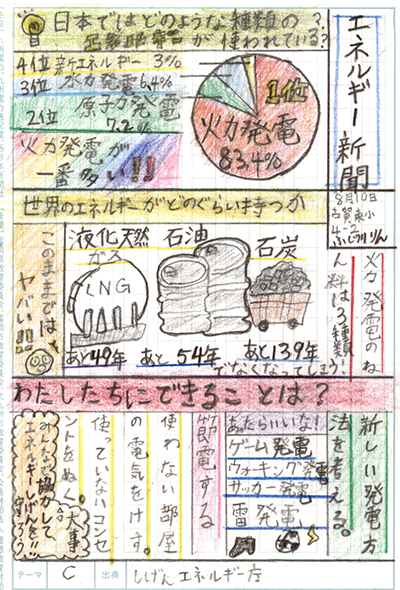 エネルギー新聞
8月10日
古賀東小
4-2
日本ではどのような種類の
が使われている?
4位 新エネルギー 3%
3位 水力発電 6.4%
2位 原子力発電
7.2%
火力発電が
一番多い!!
1位
火力発電
83.4%
世界のエネルギーがどのぐらい持つか
火力発電のね
ん料は3種類
液化天然
ガス
LNG
あと49年
石油
あと54年
石炭
あと139年
でなくなってしまう
このままでは
ヤバい!!!
わたしたちにできることは?
新しい発電方
法を考える。
あったらいいな!
ゲーム発電
ウォーキング発電
サッカー発電
雷発電
節電する
使わない部屋
の電気をけす。
使っていないコンセ
ントをぬく。大事
みんなで協力して
エネルギーしげんを!!
守ろう
テーマ
C
出典
しげんエネルギー庁